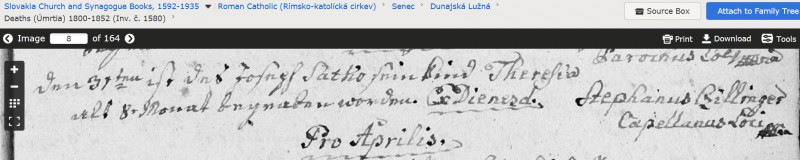 Slovakia Church and Synagogue Books, 1592-1935 Roman Catholic (Rímsko-katolícká cirkev) Senec Dunajská Lužná
Deaths (Úmrtia) 1800-1852 (Inv. č. 1580)
Source Box
Attach to Family Tree
Image 8 of 164
Print Download Tools
Parochus Loci
den 31ten ist des Joseph Satho sein Kind Theresia
alt 8 Monat begraben worden. Ex Dienesd. Stephanus Billinger
Capellanus Loci
Pro Aprilis.